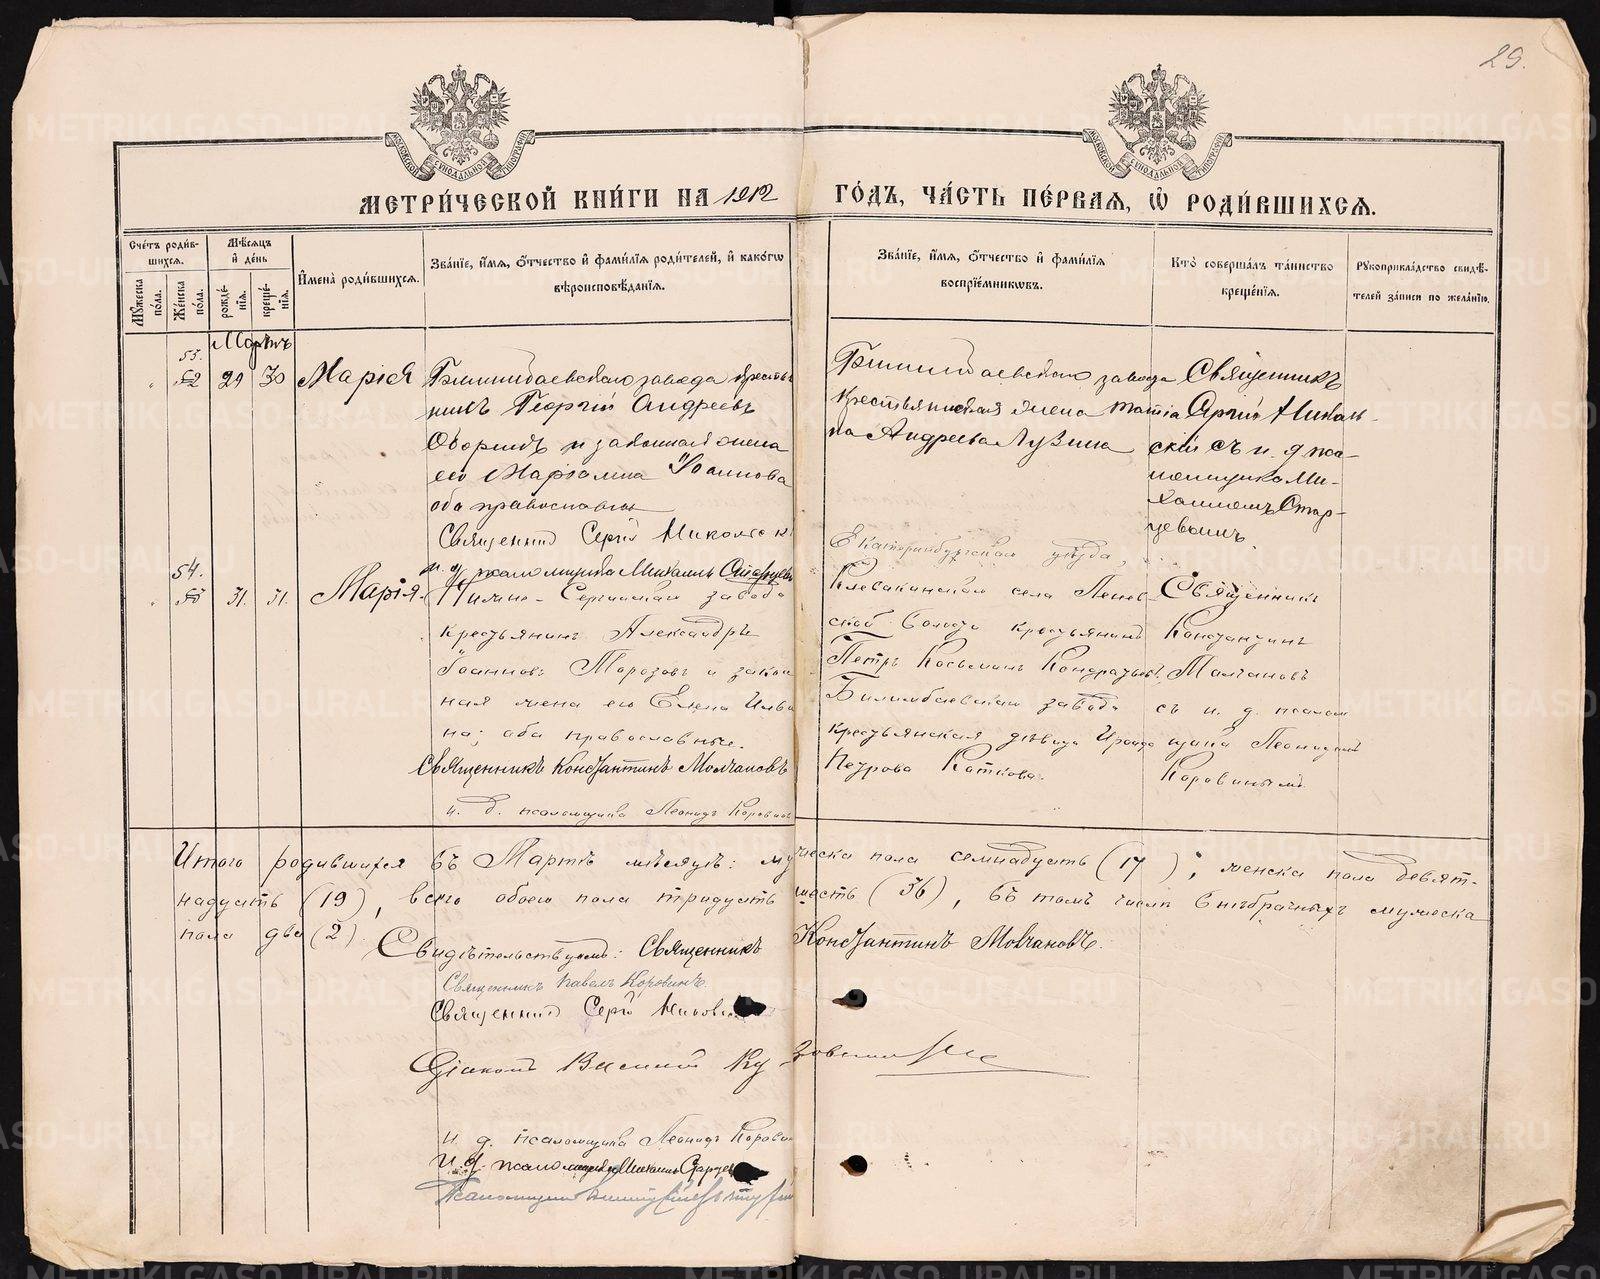 29.
МЕТРИ́ЧЕСКОЙ КНИ́ГИ НА 1912 ГО́ДЪ, ЧА́СТЬ ПЕ́РВАЯ, Ѽ РОДИ́ВШИХСЯ.
Сче́тъ роди́в-
шихся.
Мѣ́сяцъ
и҆ де́нь
Му́жеска по́ла.
Же́нска по́ла.
рожде́-
нїя.
креще́-
нїя.
И҆мена̀ роди́вшихся.
Зва́нїе, и҆́мя, ѻ҆́тчество и҆ фами́лїя роди́телей, и҆ како́гѡ
вѣроисповѣ́данїя.
Зва́нїе, и҆́мя, ѻ҆́тчество и҆ фами́лїя
воспрїе́мниковъ.
Кто̀ соверша́лъ та́инство
креще́нїя.
Рꙋкоприкла́дство свидѣ́-
телей за́писи по жела́нїю.
Мартъ
53.
29 30 Марія
Билимбаевскаго завода крестья
никъ Георгій Андреевъ
и законная жена
его Маріамна Іоаннова
оба православны
Священникъ Сергій
и. д. псаломщика Михаилъ Старцевъ
Билимбаевскаго завода
крестьянская жена
на Андреева Лузина
Священникъ
Сергій Николь-
скій съ и. д. пса-
ломщика Ми-
хаиломъ Стар-
цевымъ.
54.
31. 31. Марія.
Нижне-Сергинскаго завода
крестьянинъ Александръ
Іоанновъ Морозовъ и закон
ная жена его Елена Ильи
на; оба православные.
Священникъ Константинъ Молчановъ
и. д. псаломщика Леонидъ Коровинъ
Екатеринбургскаго уѣзда,
Клевакинскаго села
ской волости крестьянинъ
Петръ Косьминъ Кондратьевъ,
Билимбаевскаго завода
крестьянская дѣвица Ираида
Петрова Каткова.
Священникъ
Константинъ
Молчановъ
съ и. д. псалом
щика Леонидомъ
Коровинымъ.
Итого родившихся въ Мартѣ мѣсяцѣ: мужеска пола семнадцать (17), женска пола девят-
надцать (19), всего обоего пола тридцать шесть (36), въ томъ числѣ внѣбрачныхъ мужеска
пола два (2).
Свидѣтельствуемъ: Священникъ Константинъ Молчановъ.
Священникъ Павелъ Коровинъ.
Священникъ Сергій
Діаконъ Василій
и. д. псаломщика Леонидъ Коровин
и. д. псаломщика Михаилъ Старцев
Псаломщикъ